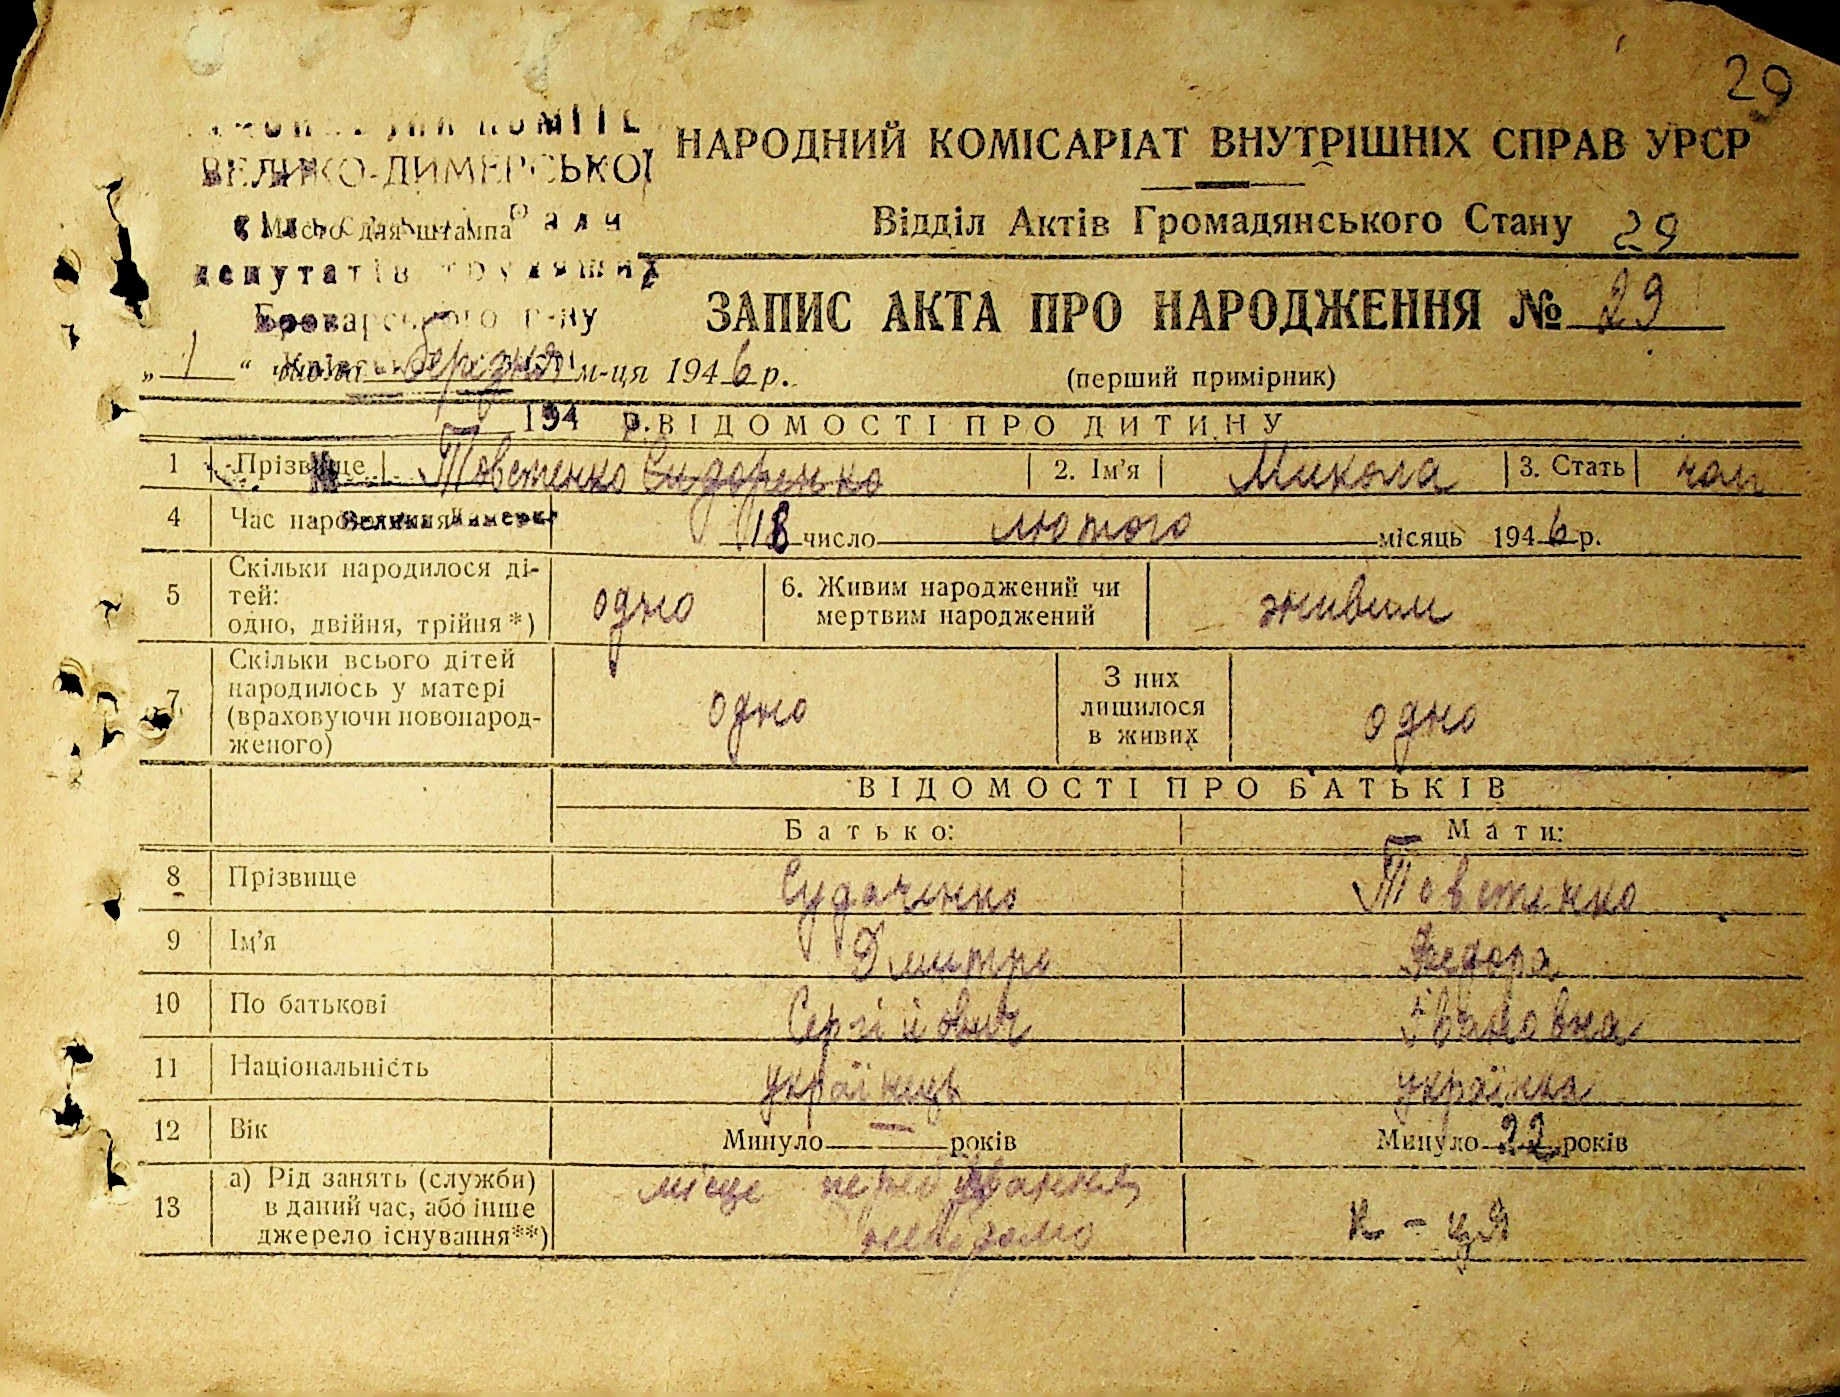 29
НАРОДНИЙ КОМІСАРІАТ ВНУТРІШНІХ СПРАВ УРСР
ВЕЛИКО-ДИМЕРСЬКОЇ
Місто для штампа
Відділ Актів Громадянського Стану 29
депутатів трудящих
Броварського р-ну
ЗАПИС АКТА ПРО НАРОДЖЕННЯ № 29
„ 1 “ числа березня м-ця 1946 р.
(перший примірник)
194 р.
ВІДОМОСТІ ПРО ДИТИНУ
1 Прізвище Товстенко Сидоренко 2. Ім'я Микола 3. Стать чол
4 Час народження 18 число лютого місяць 1946 р.
Велика Димерка
5 Скільки народилося ді-
тей:
одно, двійня, трійня*)
одно
6. Живим народжений чи
мертвим народжений
живим
7 Скільки всього дітей
народилось у матері
(враховуючи новонарод-
женого)
одно
З них
лишилося
в живих
одно
ВІДОМОСТІ ПРО БАТЬКІВ
Батько: Мати:
8 Прізвище Судаченко Товстенко
9 Ім'я Дмитро Федора
10 По батькові Сергійович Івановна
11 Національність українець українка
12 Вік Минуло — років Минуло 22 років
13 а) Рід занять (служби)
в даний час, або інше
джерело існування**)
місце перебування
невідомо
к-ця